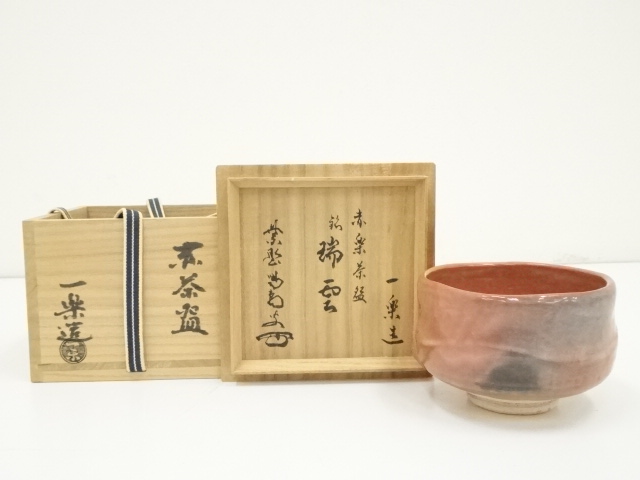 赤茶盌
一楽造
赤楽茶盌
銘
瑞雲
一楽造
紫野